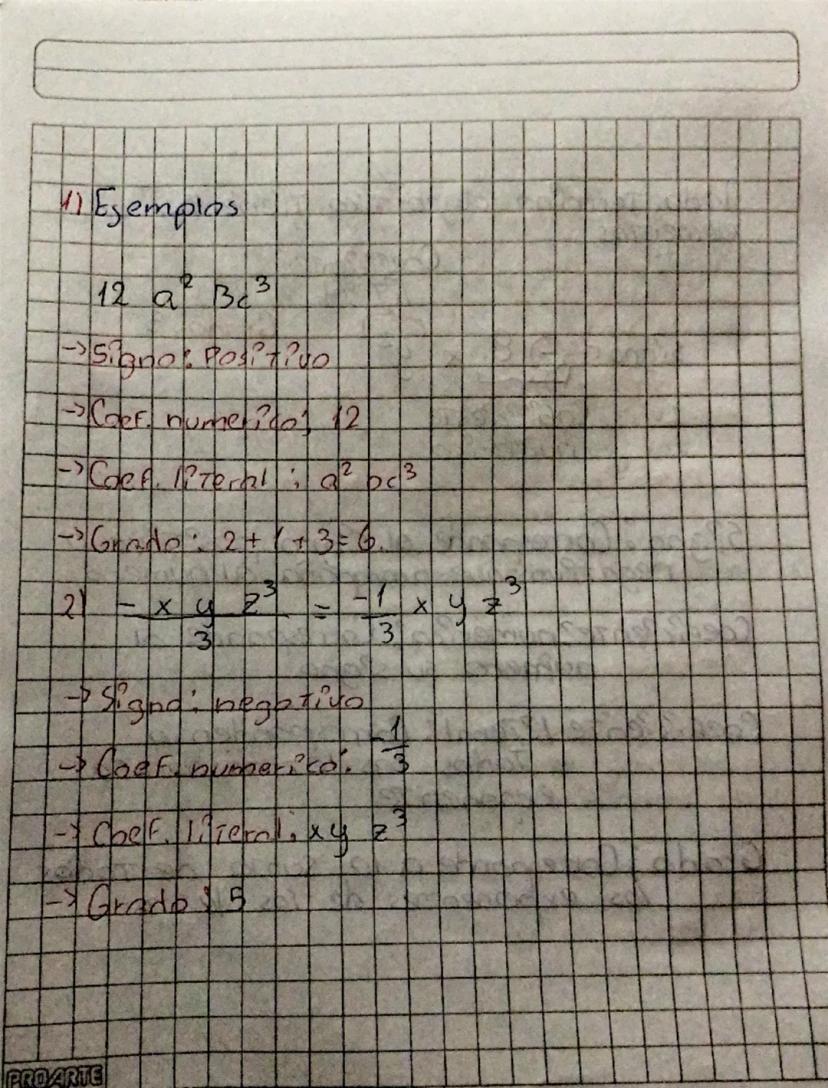 1) Ejemplos
12 a² Bc³
→ Signo: Positivo
→ Coef. numerico: 12
→ Coef. literal: a² bc³
→ Grado: 2+1+3=6.
2) - x y z³ / 3 = -1/3 x y z³
→ Signo: negativo
→ Coef. numerico: -1/3
→ Coef. literal: xy z³
→ Grado: 5
PROARTE